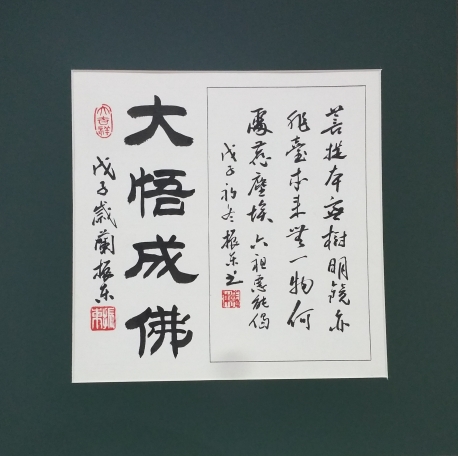 菩提本無樹明鏡亦
非臺本来無一物何
處惹塵埃六祖惠能偈
戊子初冬振东书
大悟成佛
大吉祥
戊子歲蘭振东